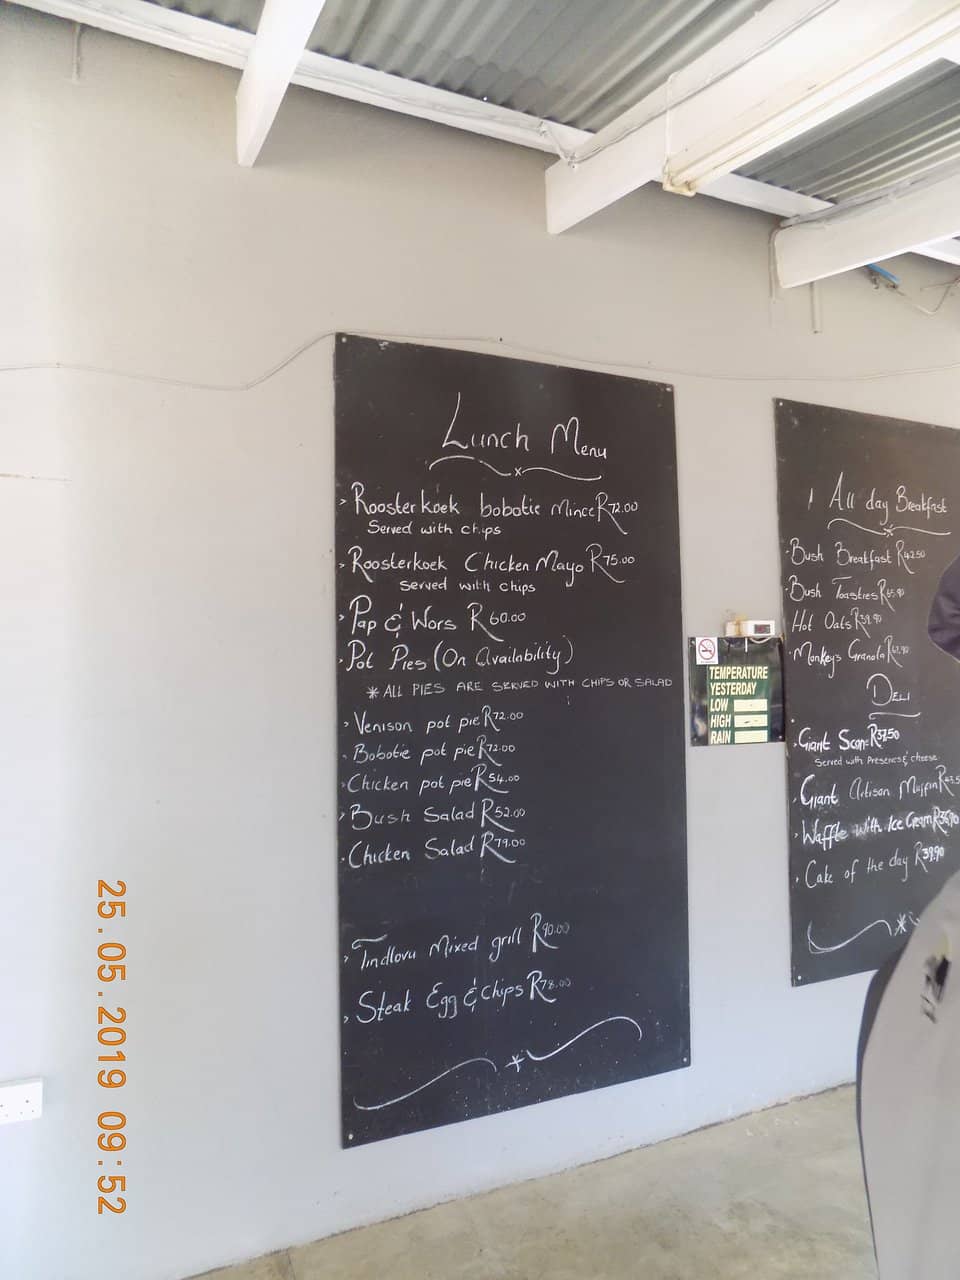 Lunch Menu
Roosterkoek bobotie Mince R72.00
Served with chips
Roosterkoek Chicken Mayo R75.00
served with chips
Pap & Wors R60.00
Pot Pies (On Availability)
* ALL PIES ARE SERVED WITH CHIPS OR SALAD
Venison pot pie R72.00
Bobotie pot pie R72.00
Chicken pot pie R54.00
Bush Salad R52.00
Chicken Salad R79.00
Tindlovu Mixed grill R90.00
Steak Egg & Chips R78.00
TEMPERATURE
YESTERDAY
LOW
HIGH
RAIN
All day Breakfast
Bush Breakfast R42.50
Bush Toasties
Hot Oats R39.90
Monkeys Granola
DELI
Giant Scone R37.50
Served with Preserves & cheese
Giant Artisan Muffin
Waffle with Ice Cream
Cake of the day R39.90
25.05.2019 09:52